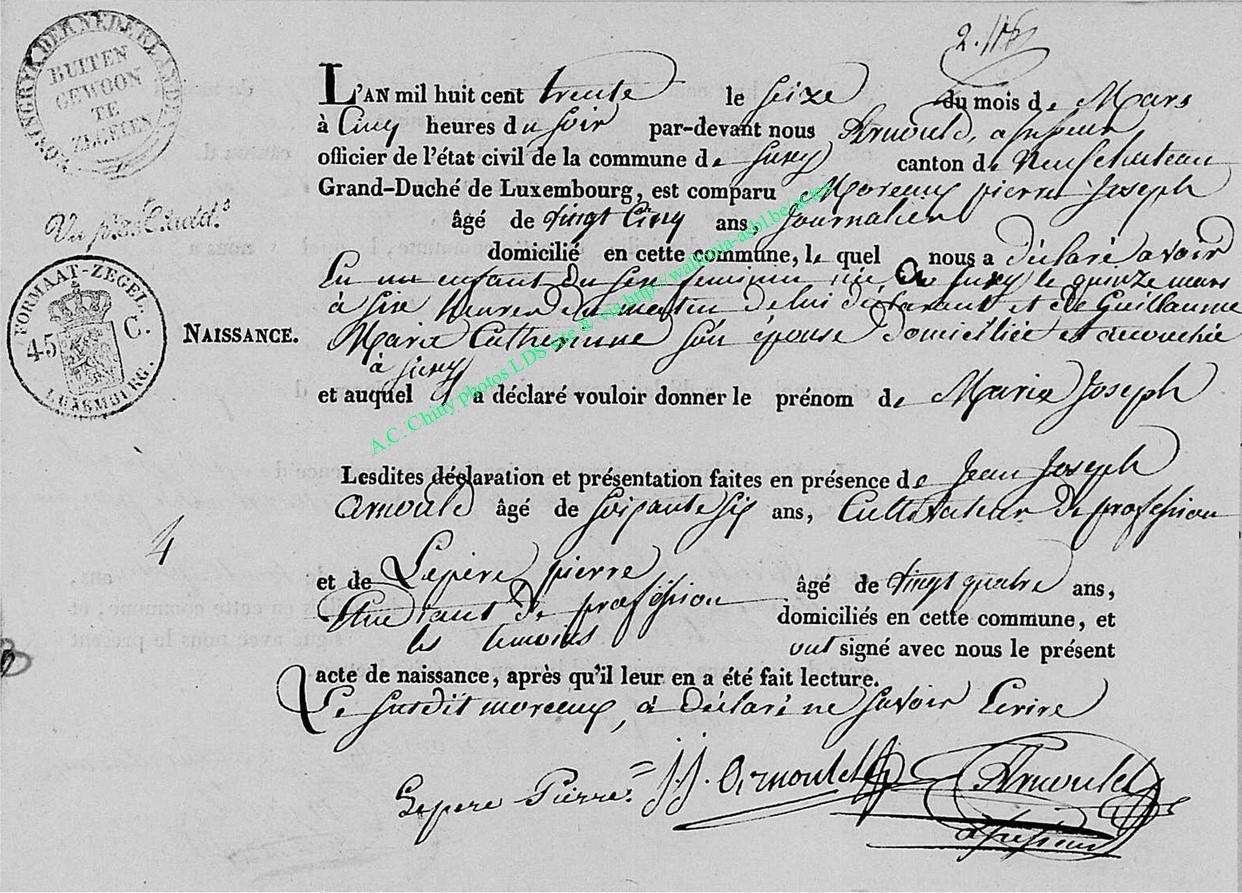 KONINGRYK DER NEDERLANDEN
BUITEN
GEWOON
TE
ZEGELEN
L'AN mil huit cent trente le seize du mois de Mars
à Cinq heures du soir par-devant nous Arnould, assesseur
officier de l'état civil de la commune de Jusry canton de Neufchateau
Grand-Duché de Luxembourg, est comparu Moreaux pierre Joseph
âgé de vingt Cinq ans, Journalier
domicilié en cette commune, le quel nous a déclaré avoir
Eu un enfant du sexe feminin née le quinze mars
à heures du matin de lui déclarant et de Guillaume
Marie Catherinne son épouse domiciliée et accouchée
à
et auquel il a déclaré vouloir donner le prénom de Marie Joseph
FORMAAT-ZEGEL.
45 C.
LUXEMBURG.
NAISSANCE.
Lesdites déclaration et présentation faites en présence de Jean Joseph
Arnould âgé de soixante six ans, Cultivateur de profession
4
et de Lepère pierre âgé de vingt quatre ans,
de profession domiciliés en cette commune, et
les temoins ont signé avec nous le présent
acte de naissance, après qu'il leur en a été fait lecture.
Le susdit moreaux, a déclaré ne savoir Ecrire
Lepere Pierre J.J. Arnould Arnould
assesseur
A.C. Chiny photos LDS site @ via http://wallonia-asbl.be/actes